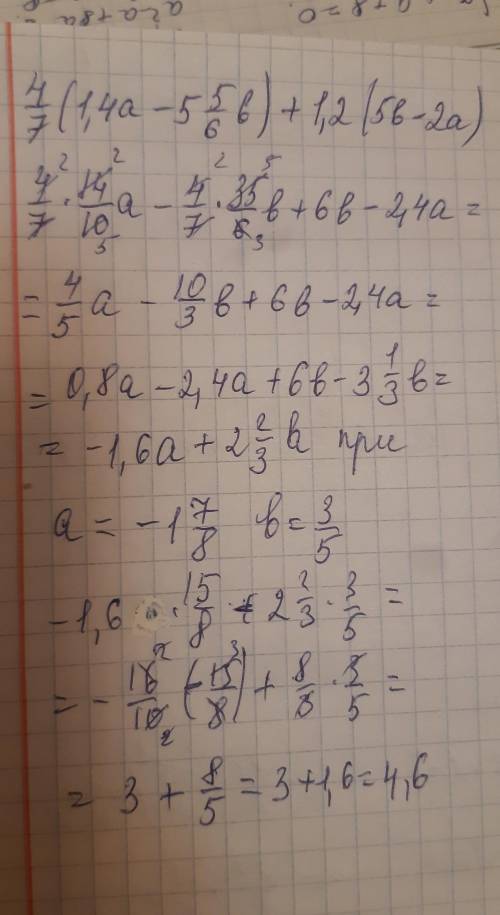 4/7 (1,4a - 5 5/6 в) + 1,2 (5в - 2a)
4/7 · 14/10 a - 4/7 · 35/6 в + 6в - 2,4a =
= 4/5 a - 10/3 в + 6в - 2,4a =
= 0,8a - 2,4a + 6в - 3 1/3 в =
= -1,6a + 2 2/3 в при
a = -1 7/8 в = 3/5
-1,6 · 15/8 + 2 2/3 · 3/5 =
= - 16/10 (-15/8) + 8/3 · 3/5 =
= 3 + 8/5 = 3 + 1,6 = 4,6